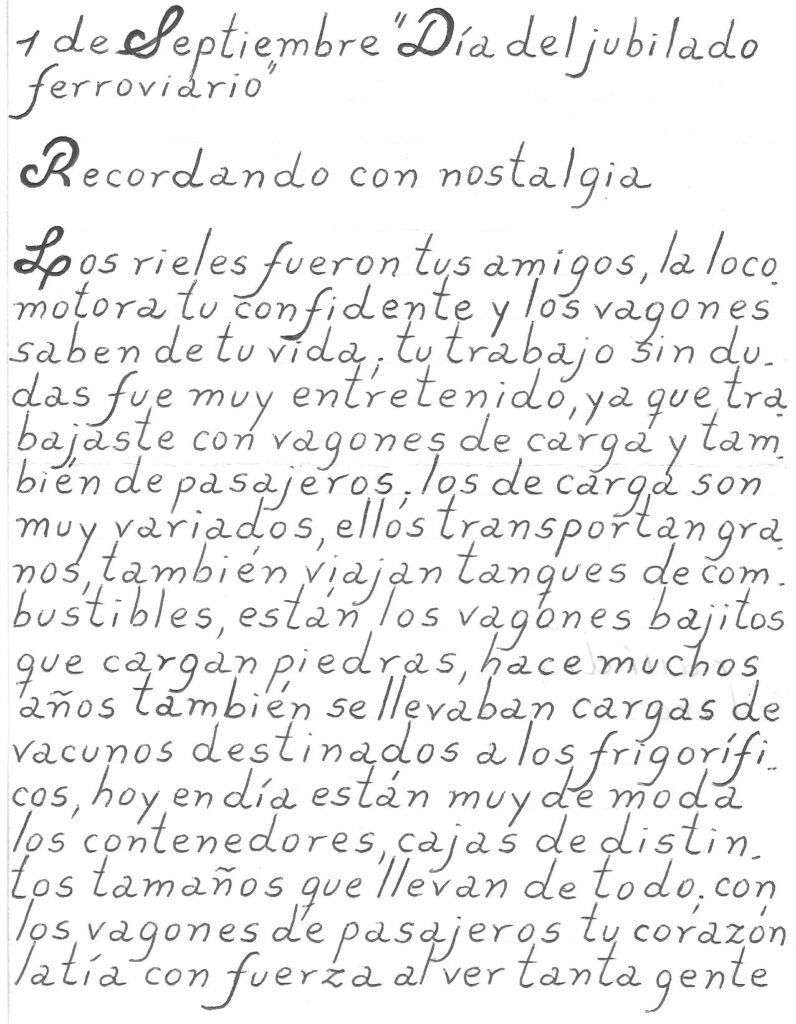 1 de Septiembre "Día del jubilado
ferroviario"
Recordando con nostalgia
Los rieles fueron tus amigos, la loco_
motora tu confidente y los vagones
saben de tu vida; tu trabajo sin du_
das fue muy entretenido, ya que tra_
bajaste con vagones de carga y tam_
bién de pasajeros; los de carga son
muy variados, ellos transportan gra_
nos, también viajan tanques de com_
bustibles, están los vagones bajitos
que cargan piedras, hace muchos
años también se llevaban cargas de
vacunos destinados a los frigorífi_
cos, hoy en día están muy de moda
los contenedores, cajas de distin_
tos tamaños que llevan de todo; con
los vagones de pasajeros tu corazón
latía con fuerza al ver tanta gente